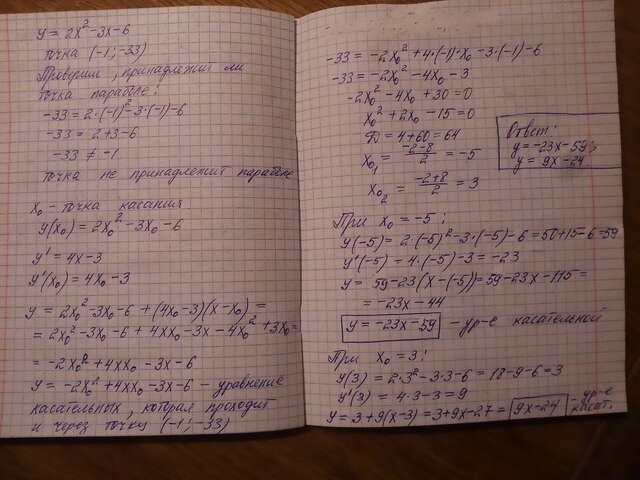 y = 2x² - 3x - 6
точка (-1; -33)
Проверим, принадлежит ли
точка параболе:
-33 = 2·(-1)² - 3·(-1) - 6
-33 = 2 + 3 - 6
-33 ≠ -1
точка не принадлежит параболе
x₀ - точка касания
y(x₀) = 2x₀² - 3x₀ - 6
y' = 4x - 3
y'(x₀) = 4x₀ - 3
y = 2x₀² - 3x₀ - 6 + (4x₀ - 3)(x - x₀) =
= 2x₀² - 3x₀ - 6 + 4xx₀ - 3x - 4x₀² + 3x₀ =
= -2x₀² + 4xx₀ - 3x - 6
y = -2x₀² + 4xx₀ - 3x - 6 - уравнение
касательных, которая проходит
и через точку (-1; -33)
-33 = -2x₀² + 4·(-1)·x₀ - 3·(-1) - 6
-33 = -2x₀² - 4x₀ - 3
-2x₀² - 4x₀ + 30 = 0
x₀² + 2x₀ - 15 = 0
D = 4 + 60 = 64
x₀₁ = (-2-8)/2 = -5
x₀₂ = (-2+8)/2 = 3
Ответ:
y = -23x - 59;
y = 9x - 24
При x₀ = -5:
y(-5) = 2·(-5)² - 3·(-5) - 6 = 50 + 15 - 6 = 59
y'(-5) = 4·(-5) - 3 = -23
y = 59 - 23(x - (-5)) = 59 - 23x - 115 =
= -23x - 44
y = -23x - 59 - ур-е касательной
При x₀ = 3:
y(3) = 2·3² - 3·3 - 6 = 18 - 9 - 6 = 3
y'(3) = 4·3 - 3 = 9
y = 3 + 9(x - 3) = 3 + 9x - 27 = 9x - 24 - ур-е
касат.